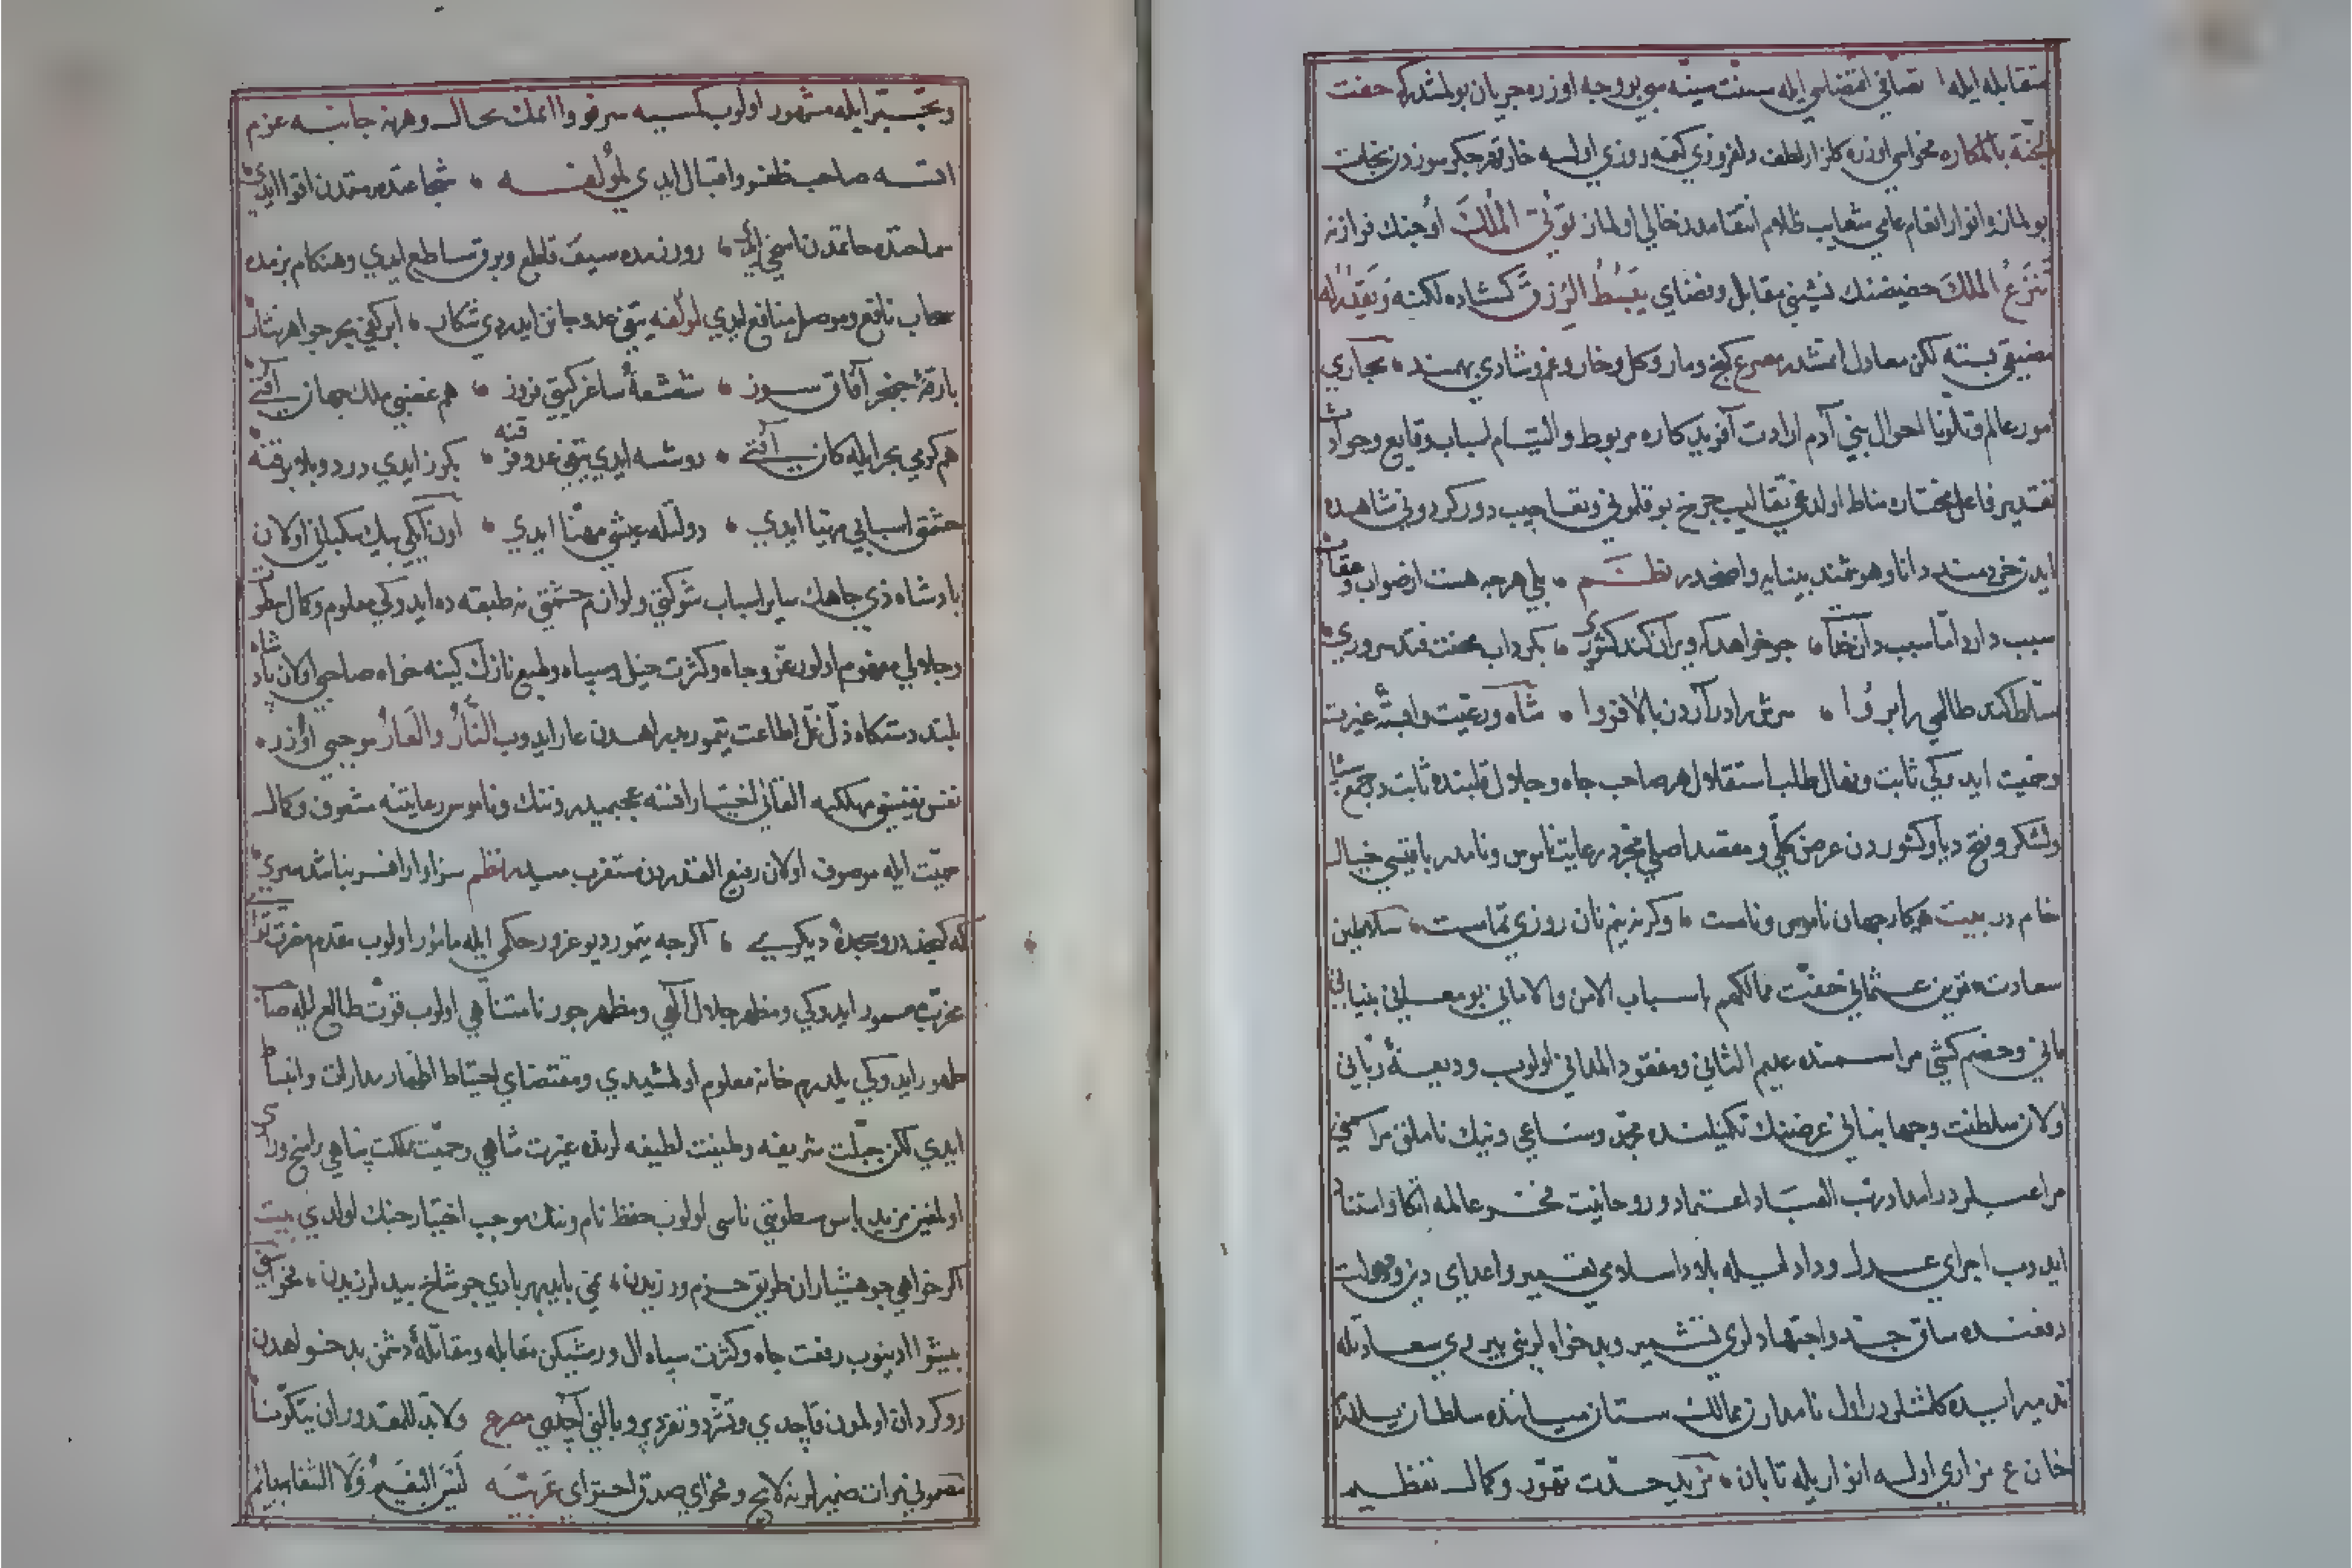 متقابله ايله تصافى اقتضاسى ايله سنت سنيه بو بر وجه اوزره جريان بولمشدركه حفت
الجنة بالمكاره فحواسى اوزره كلزار لطف دلفروزى كيمه روزى اولسه خار قهر جكرسوزدن نجات
بولماز وانوار انعام عامى شعايب ظلام انتقامدن خالى اولماز تؤتى الملك اوجنك فرازنه
تنزع الملك حضيضنك نشيبى مقابل وفضاى يبسط الرزق كشاده لكنه ويقدر له
مضيقى بسته لكن معادل ايتمشدر مصرع كنج ومار وكل وخار وغم وشادى بهمند مجارى
امور عالم وتلونات احوال بنى آدم ارادت آفريدكاره مربوط والتيام اسباب وقايع وحوادث
تقدير فاعل مختاره مناط اولدوغى تقاليب چرخ بوقلمونى وتعاجيب دور كردونى مشاهده
ايدن خردمند دانا وهوشمند بينايه واضحدر نظم بلى هرچه هست از صواب وعقاب
سبب دارد اما سبب دان خدا چو خواهد كه ويران كند كشورى بكرداب محنت فتد سرورى
مسلط كند ظالمى را برو سرش را در آرد ز بالا فرو شاه ورعيت وابسته غيرت
وحميت ايدوكى ثابت ونهال طلب استقلال هر صاحب جاه وجلال قلبنده ثابت وجمع سپاه
ولشكر وفتح ديار وكشوردن غرض كلى ومقصد اصلى مجرد رعايت ناموس ونامدر باقيسى خيال
خام در بيت همه كار جهان ناموس ونامست وكرنه نيم نان روزى تمامست سلاطين
سعادت قرين عثمانى حفت ممالكهم باسباب الامن والامانى بو معالى بنيانى
بانى وخصم كشى مراسمنده عديم الثانى ومفقود المدانى اولوب وديعه ربانى
اولان سلطنت وجهانبانى عرضنك تكميلنده مجد وساعى ونيك نامليق مراسمنى
مراعيلردر امداد رب العباده اعتماد وروحانيت مفخر عالمه اتكا واستناد
ايدوب اجراى عدل وداد ايله بلاد اسلامى تعمير واعداى دين ودولت
دفعنده ساق جد واجتهادلرى تشمير وبدخواهلرينى پيروى سعادتله
تدمير ايده كلمشلردر اول نامدار ممالك ستان ميانده سلطان يلدرم
خان ع مزارى اولسه انوار يله تابان مزيد حدت تهور وكمال تعظيم
وتجبر ايله مشهور اولوب كسيه سرفرو اتمك محال وهر نه جانبه عزم
اتسه صاحب ظفر واقبال ايدى لمؤلفه شجاعتده رستمدن اقوا ايدى
سماحتده حاتمدن اسخى ايدى روز رزمده سيف قاطع وبرق ساطع ايدى وهنكام بزمده
سحاب نافع وموصل منافع ايدى لمؤلفه تيغى عدو جانن ايدردى شكار ابر كفى بحر جواهر نثار
بارقه خنجر آفاق سوز شعشعه ساغر كيتى فروز هم غضبى ملك جهان آفتى
هم كرمى بحر ايله كان آفتى روشسه ايدى تيغى عدو فرقنه بكزر ايدى درد وبلا برقنه
حشمتى اسبابى مهيا ايدى دولتله عيشى مهنا ايدى اون ايكى بيك سكبانى اولان
پادشاه ذى جاهك ساير اسباب شوكتى ولوازم حشمتى نه طبقه ده ايدوكى معلوم وكمال طور
وجلالى مفهوم اولور عز وجاه وكثرت خيل وسپاه وطبع نازك كينه خواه صاحبى اولان پادشاه
بلند دستكاه ذل غل اطاعت تيمور بدراهدن عار ايدوب النار والعار موجبى اوزره
نفس نفيسنى مهلكيه القانى اختيار اتسه عجبميدر وننك وناموس رعايتنه مشعوف وكمال
حميت ايله موصوف اولان رفيع القدردن مستغربميدر نظم سزاوار افسر نباشد سرى
كه كيرد در وسجده ديكرى اكرچه تيمور ديو غرور حكمى ايله مامور اولوب مقدم حضرت
عزتده منصور ايدوكى ومظهر جلال الهى ومظهر جور نامتناهى اولوب قوت طالع ايله صاحب
ظهور ايدوكى يلدرم خانه معلوم اولمشيدى ومقتضاى احتياط اظهار مدارات وانبساط
ايدى لكن جبلت شريفه وطينت لطيفه لرنده غيرت شاهى وحميت مملكت پناهى راسخ وراسى
اولمغين مزيد باس سطوتنى ناسى اولوب حفظ نام وننك موجب اختيار جنك اولدى بيت
اكر خواهى چو هشياران طريق حزم ورزيدن نمى بايد بهر بادى چو شاخ بيد لرزيدن فحواسنى
پيشوا ايدينوب رفعت جاه وكثرت سپاه ال ورمشيكن مقابله ومقاتله دشمن بدخواهدن
روكردان اولمدن قاچدى وتشرد وتفرد پر وبالنى آچدى مصرع ولا بد للمقدور ان يتكونا
مضمونى مرات ضميرلرينه لايح وفحواى صدق احتواى عربيه